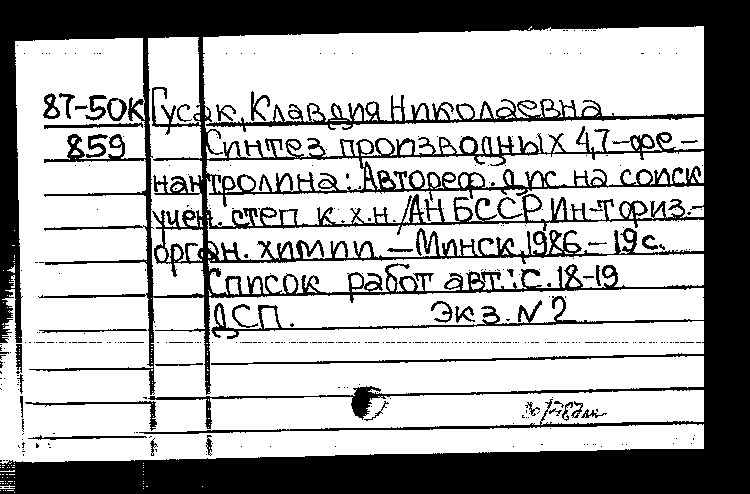 87-50К Гусак, Клавдия Николаевна
859 Синтез производных 4,7-фе-
нантролина: Автореф. дис. на соиск
учен. степ. к.х.н. /АН БССР, Ин-т физ.-
орган. химии. — Минск, 1986. - 19 с.
Список работ авт.: с. 18-19
ДСП. Экз. N 2